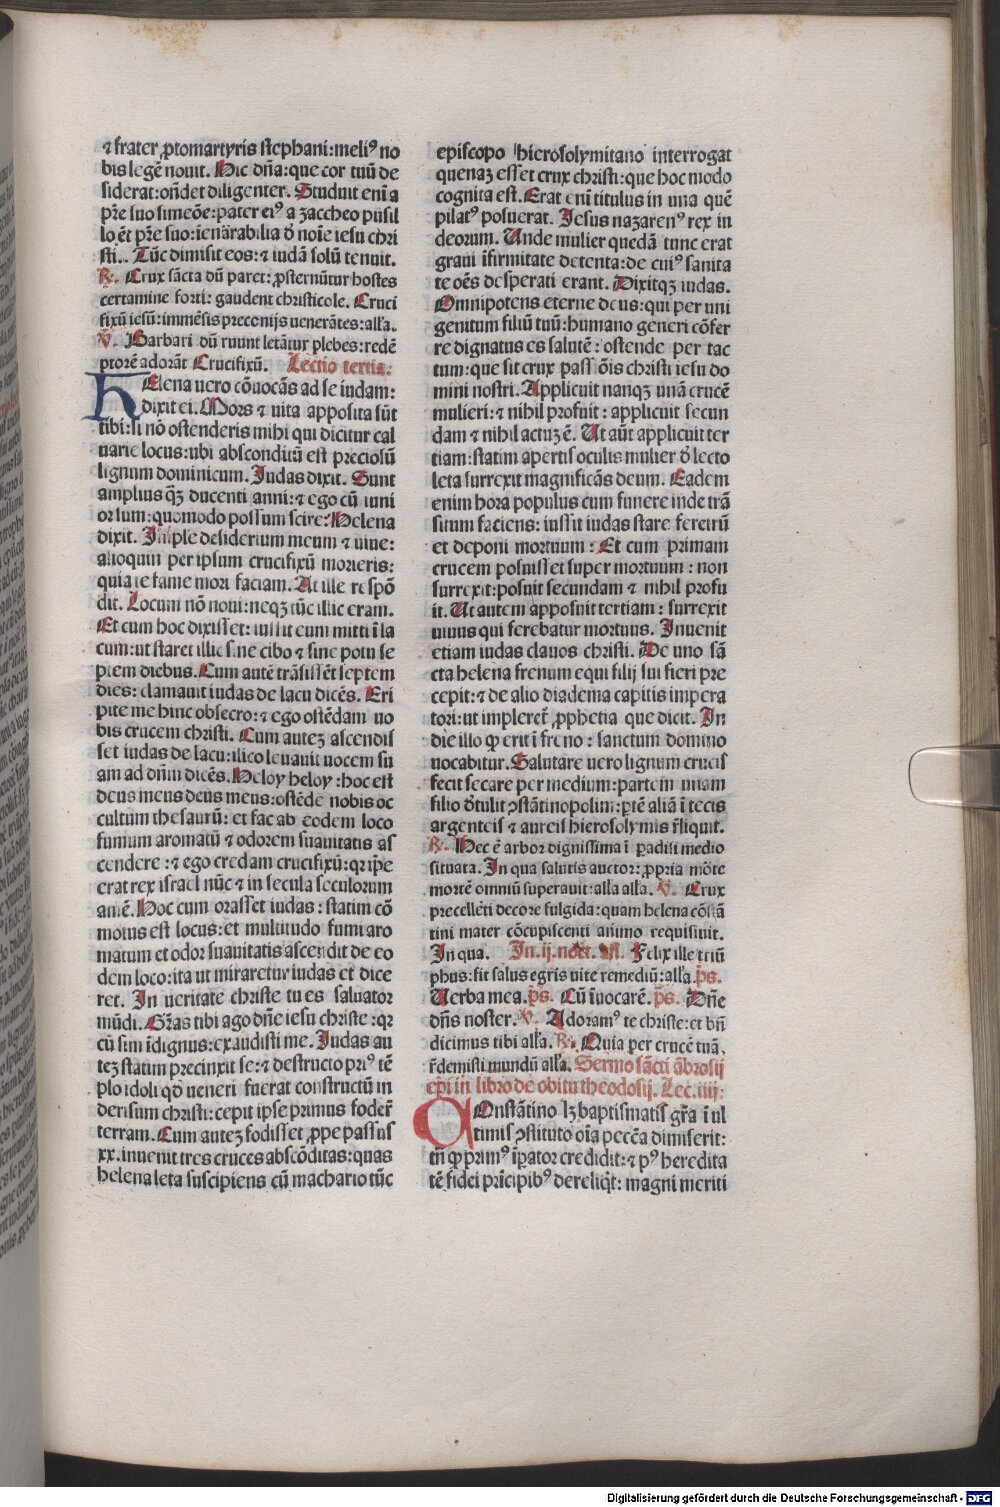 ⁊ frater ꝓtomartyris stephani: meliꝰ no
bis legē nouit. Hic dn̄a: que cor tuū de
siderat: on̄det diligenter. Studuit eni a
pr̄e suo simeōe: pater eiꝰ a zaccheo pusil
lo ēt pr̄e suo: venārabilia ꝺ noīe iesu chri
sti.. Tūc dimisit eos: ⁊ iudā solū tenuit.
℟. Crux sācta dū paret: ꝓsternūtur hostes
certamine forti: gaudent christicole. Cruci
fixū iesū: immēsis preconijs uenerātes: alľa.
℣. Barbari dū ruunt letātur plebes: redē
ptorē adorāt Crucifixū. Lectio tertia:
HElena uero cōuocās ad se iudam:
dixit ei. Mors ⁊ uita apposita sūt
tibi: si nō ostenderis mihi qui dicitur cal
uarie locus: ubi absconditū est preciosū
lignum dominicum. Judas dixit. Sunt
amplius qꝫ ducenti anni: ⁊ ego cū iuni
or sum: quomodo possum scire? Helena
dixit. Imple desiderium meum ⁊ uiue:
alioquin per ipsum crucifixū morieris:
quia te fame mori faciam. At ille respō
dit. Locum nō noui: neqꝫ tūc illic eram.
Et cum hoc dixisset: iussit eum mitti ī la
cum: ut staret illic sine cibo ⁊ sine potu se
ptem diebus. Cum autē trāsissēt septem
dies: clamauit iudas de lacu dicēs. Eri
pite me hinc obsecro: ⁊ ego ostēdam uo
bis crucem christi. Cum auteꝫ ascendis
set iudas de lacu: ilico leuauit uocem su
am ad dn̄m dicēs. Heloy heloy: hoc est
deus meus deus meus: ostēde nobis oc
cultum thesaurū: et fac ab eodem loco
fumum aromatū ⁊ odorem suauitatis as
cendere: ⁊ ego credam crucifixū: qꝛ ip̄e
erat rex israel nūc ⁊ in secula seculorum
amē. Hoc cum orasset iudas: statim cō
motus est locus: et multitudo fumi aro
matum et odor suauitatis ascendit de eo
dem loco: ita ut miraretur iudas et dice
ret. In ueritate christe tu es saluator
mūdi. Gr̄as tibi ago dn̄e iesu christe: qꝛ
cū sim īdignus: exaudisti me. Judas au
teꝫ statim precinxit se: ⁊ destructo priꝰ tē
plo idoli qď ueneri fuerat constructū in
derisum christi: cepit ipse primus foder̄
terram. Cum auteꝫ fodisset ꝓpe passus
xx. inuenit tres cruces abscōditas: quas
helena leta suscipiens cū machario tūc
episcopo hierosolymitano interrogat
quenaꝫ esset crux christi: que hoc modo
cognita est. Erat eni titulus in una quē
pilatꝰ posuerat. Jesus nazarenꝰ rex iu
deorum. Unde mulier quedā tunc erat
graui īfirmitate detenta: de cuiꝰ sanita
te oēs desperati erant. Dixitqꝫ iudas.
Omnipotens eterne deus: qui per uni
genitum filiū tuū: humano generi cōfer
re dignatus es salutē: ostende per tac
tum: que sit crux passōis christi iesu do
mini nostri. Applicuit nanqꝫ unā crucē
mulieri: ⁊ nihil profuit: applicuit secun
dam ⁊ nihil actuꝫ ē. Ut aūt applicuit ter
tiam: statim apertis oculis mulier ꝺ lecto
leta surrexit magnificās deum. Eadem
enim hora populus cum funere inde trā
situm faciens: iussit iudas stare feretrū
et deponi mortuum: Et cum primam
crucem posuisset super mortuum: non
surrexit: posuit secundam ⁊ nihil profu
it. Ut autem apposuit tertiam: surrexit
uiuus qui ferebatur mortuus. Inuenit
etiam iudas clauos christi. De uno sā
cta helena frenum equi filij sui fieri pre
cepit: ⁊ de alio diadema capitis impera
tori: ut impleret̄ ꝓphetia que dicit. In
die illo ꝙ erit ī freno: sanctum domino
uocabitur. Salutare uero lignum crucis
fecit secare per medium: partem unam
filio ꝺtulit ꝯstātinopolim: ꝑtē aliā ī tecis
argenteis ⁊ aureis hierosolymis r̄liquit.
℟. Hec ē arbor dignissima ī ꝑadisi medio
situata. In qua salutis auctor: ꝓpria mōte
mortē omniū superauit: alľa alľa. ℣. Crux
precellēti decore fulgida: quam helena cōstā
tini mater cōcupiscenti animo requisiuit.
In qua. In.ij.noct. añ. Felix ille triū
phus: fit salus egris uite remediū: alľa. p̄s.
Uerba mea. p̄s. Cū īuocarē. p̄s. Dn̄e
dn̄s noster. ℣. Adoramꝰ te christe: et bn̄
dicimus tibi alľa. ℟. Quia per crucē tuā.
r̄demisti mundū alľa. Sermo sācti ābrosij
ep̄i in libro de obitu theodosij. Lec.iiij:
COnstātino lꝫ baptismatis gr̄a ī ul
timis ꝯstituto oīa peccā dimiserit:
tn̄ ꝙ primꝰ īpator credidit: ⁊ pꝰ heredita
tē fidei prīcipibꝰ dereliq̄t: magni meriti
Digitalisierung gefördert durch die Deutsche Forschungsgemeinschaft - DFG